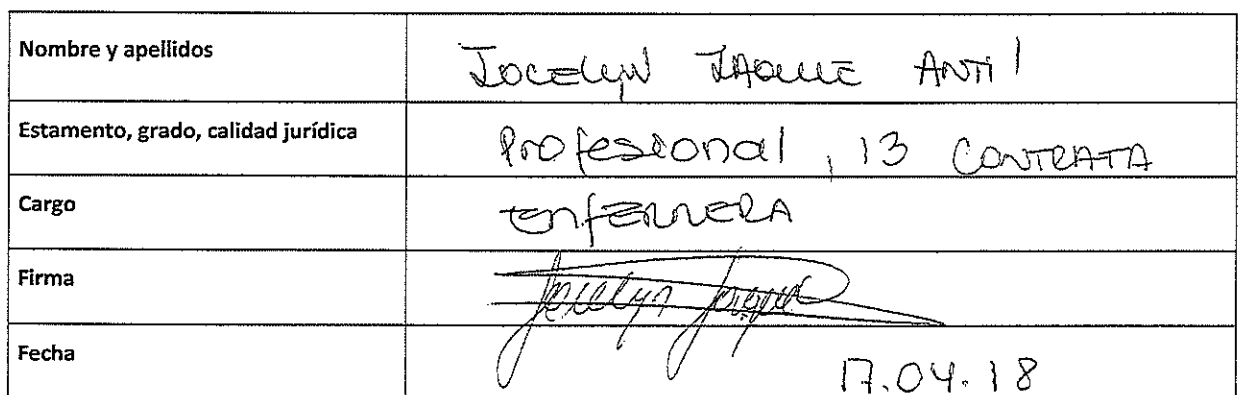 Nombre y apellidos Jocelyn Jaque Anti
Estamento, grado, calidad jurídica Profesional, 13 CONTRATA
Cargo Enfermera
Firma Jocelyn
Fecha 17.04.18